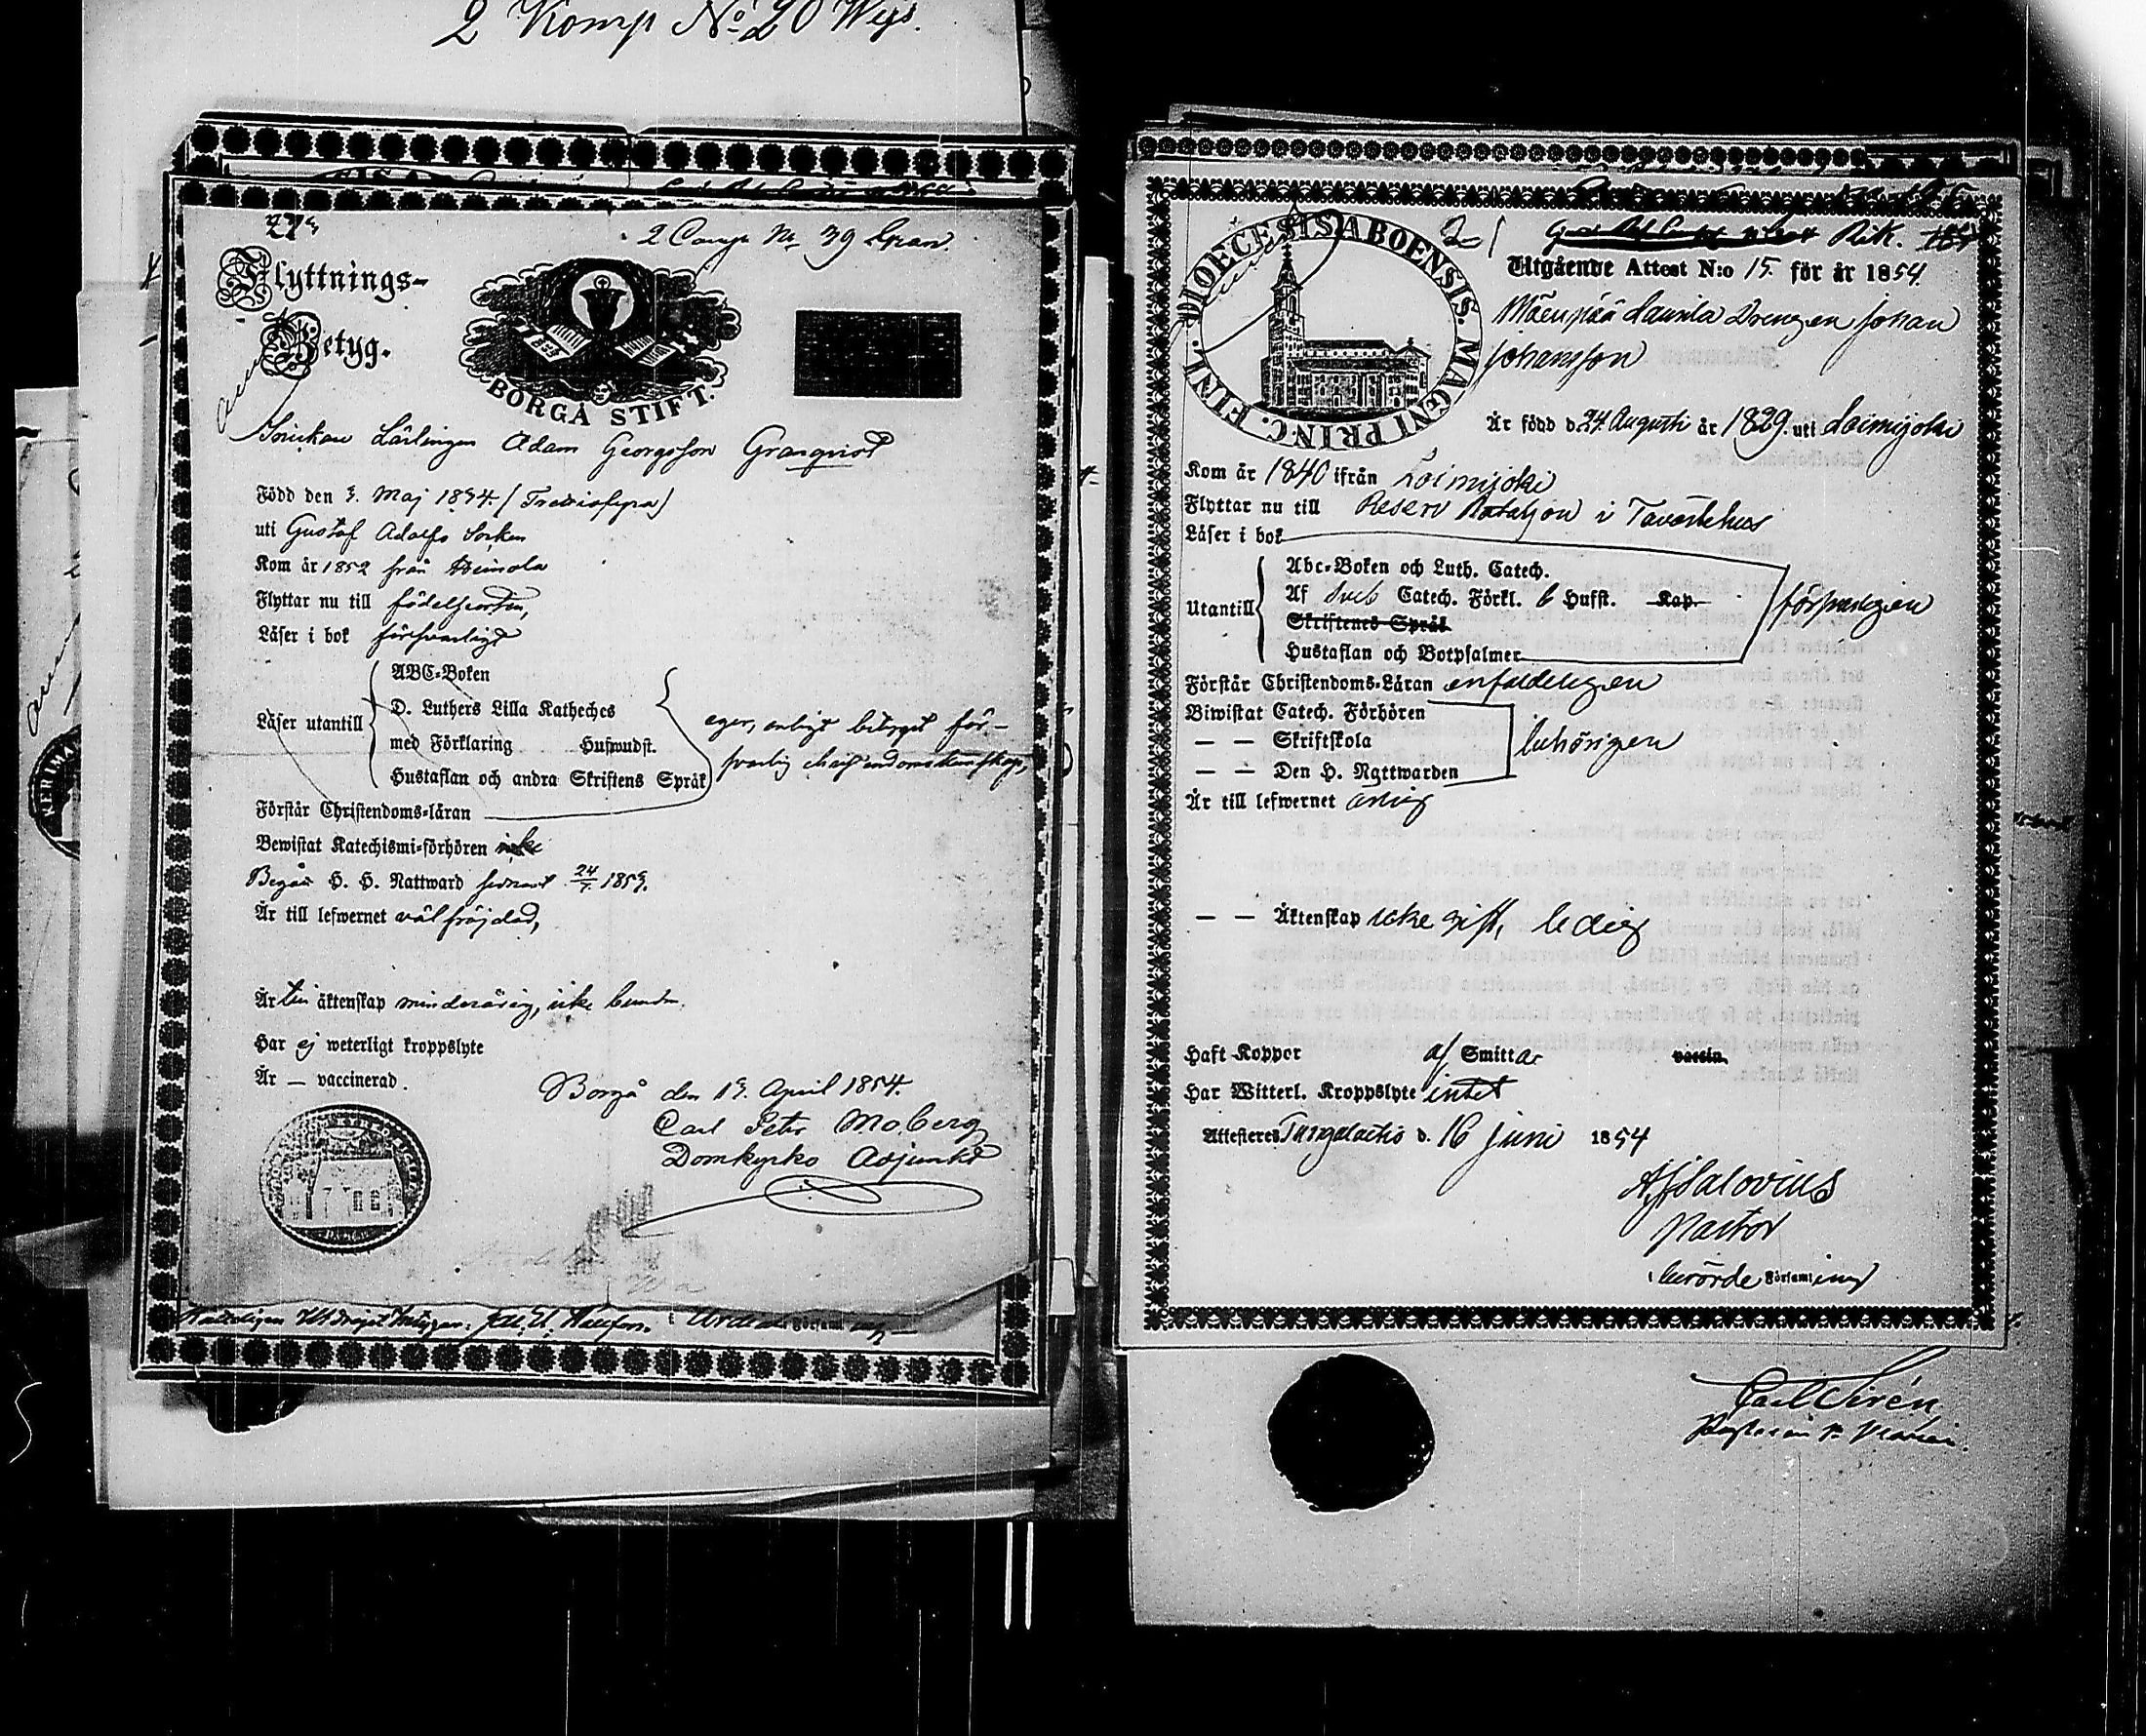 2 Komp No 20 Wejs.
2 Comp No 39 Gran.
Flyttnings-
Betyg.
BORGÅ STIFT.
Lärlingen Adam Georgsson Granqvist
Född den 3. Maj 1834. (
uti Gustaf Adolfs Socken
Kom år 1852 från Heinola
Flyttar nu till födelseorten,
Läser i bok försvarligt
Läser utantill
ABC-Boken
D. Luthers Lilla Katheches
med Förklaring Hufwudst.
Hustaflan och andra Skriftens Språk
eger, enligt betyget för-
svarlig christendomskunskap,
Förstår Christendoms-läran
Bewistat Katechismi-förhören icke
Begått H. H. Nattward senast 24/7 1853.
Är till lefwernet väl fräjdad,
Är till äktenskap minderårig, icke bunden.
Har ej weterligt kroppslyte
Är — vaccinerad.
Borgå den 13. April 1854.
Carl Petr Moberg
Domkyrko Adjunkt
i Församling
DIOECESIS ABOENSIS. MAGNI PRINC. FINL.
2 Rik.
Utgående Attest N:o 15. för år 1854.
Mäenpää Laurila Drengen Johan
Johansson
Är född d. 24 Augusti år 1829. uti Loimijoki
Kom år 1840 ifrån Loimijoki
Flyttar nu till Reserv Bataljon i Tavastehus
Läser i bok
Utantill
Abc-Boken och Luth. Catech.
Af Sveb Catech. Förkl. 6 Hufst. Kap.
Skriftenes Språk
Hustaflan och Botpsalmer
försvarligen
Förstår Christendoms-Läran enfaldeligen
Biwistat Catech. Förhören
— — Skriftskola
— — Den H. Nattwarden
behörigen
Är till lefwernet ärlig
— — Äktenskap icke gift, ledig
Haft Koppor af Smittar vaccin.
Har Witterl. Kroppslyte intet
Attesteres d. 16 Juni 1854
A J Salovius
Pastor
i berörde Församling
Carl Sirén